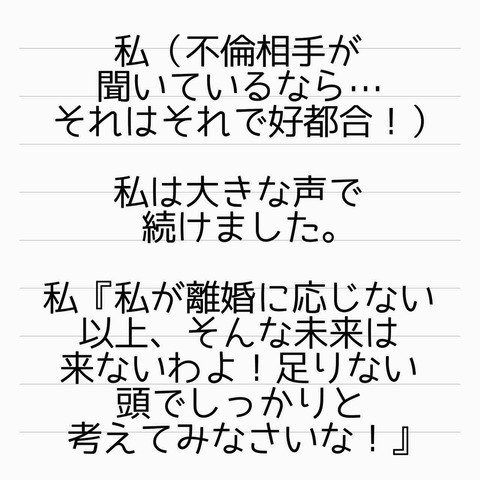 私（不倫相手が
聞いているなら…
それはそれで好都合！）
私は大きな声で
続けました。
私『私が離婚に応じない
以上、そんな未来は
来ないわよ！足りない
頭でしっかりと
考えてみなさいな！』